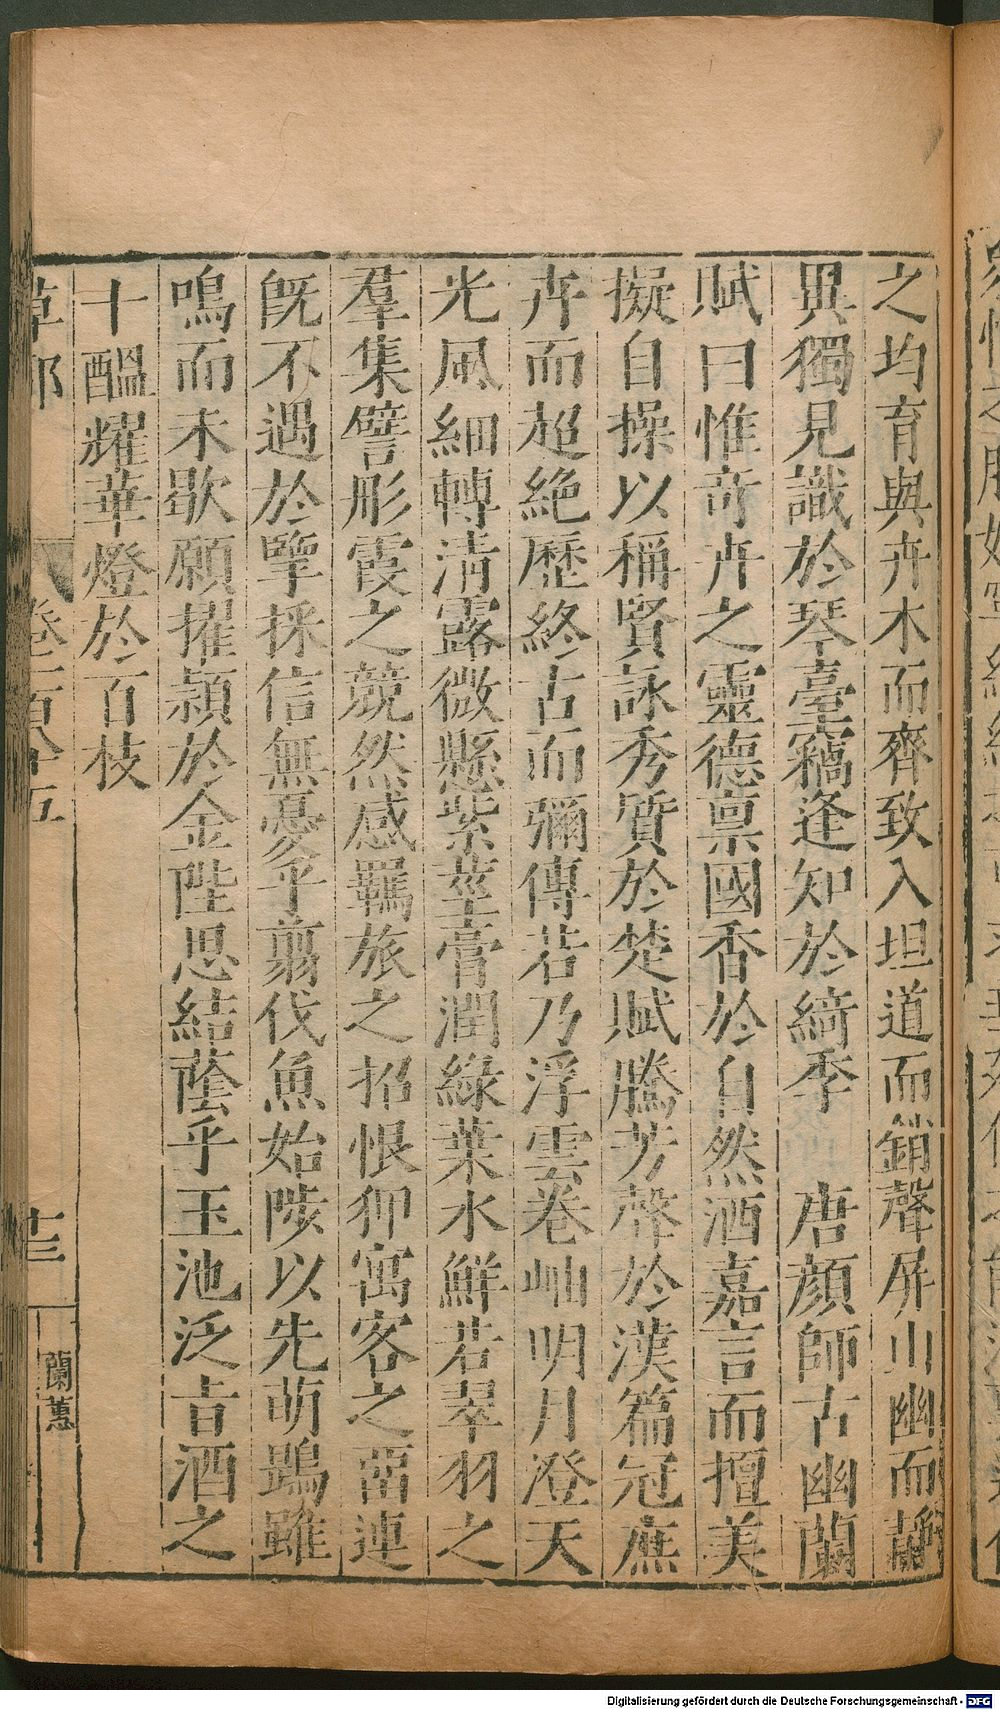 之均育與卉木而齊致入坦道而銷聲屏山幽而靜
異獨見識於琴臺竊逢知於綺季　唐顏師古幽蘭
賦曰惟奇卉之靈德稟國香於自然洒嘉言而擅美
擬自操以稱賢詠秀質於楚賦騰芳聲於漢篇冠庶
卉而超絶歷終古而彌傳若乃浮雲卷岫明月澄天
光風細轉清露微懸紫莖膏潤綠葉水鮮若翠羽之
羣集譬彤霞之競然感羈旅之招恨狎寓客之畱連
旣不遇於揅採信無憂乎翦伐魚始陟以先萌鶗雖
鳴而未歇願擢潁於金陛思結蔭乎玉池泛旨酒之
十醞耀華燈於百枝
草部　卷一百八十五　十三　蘭蕙
Digitalisierung gefördert durch die Deutsche Forschungsgemeinschaft - DFG